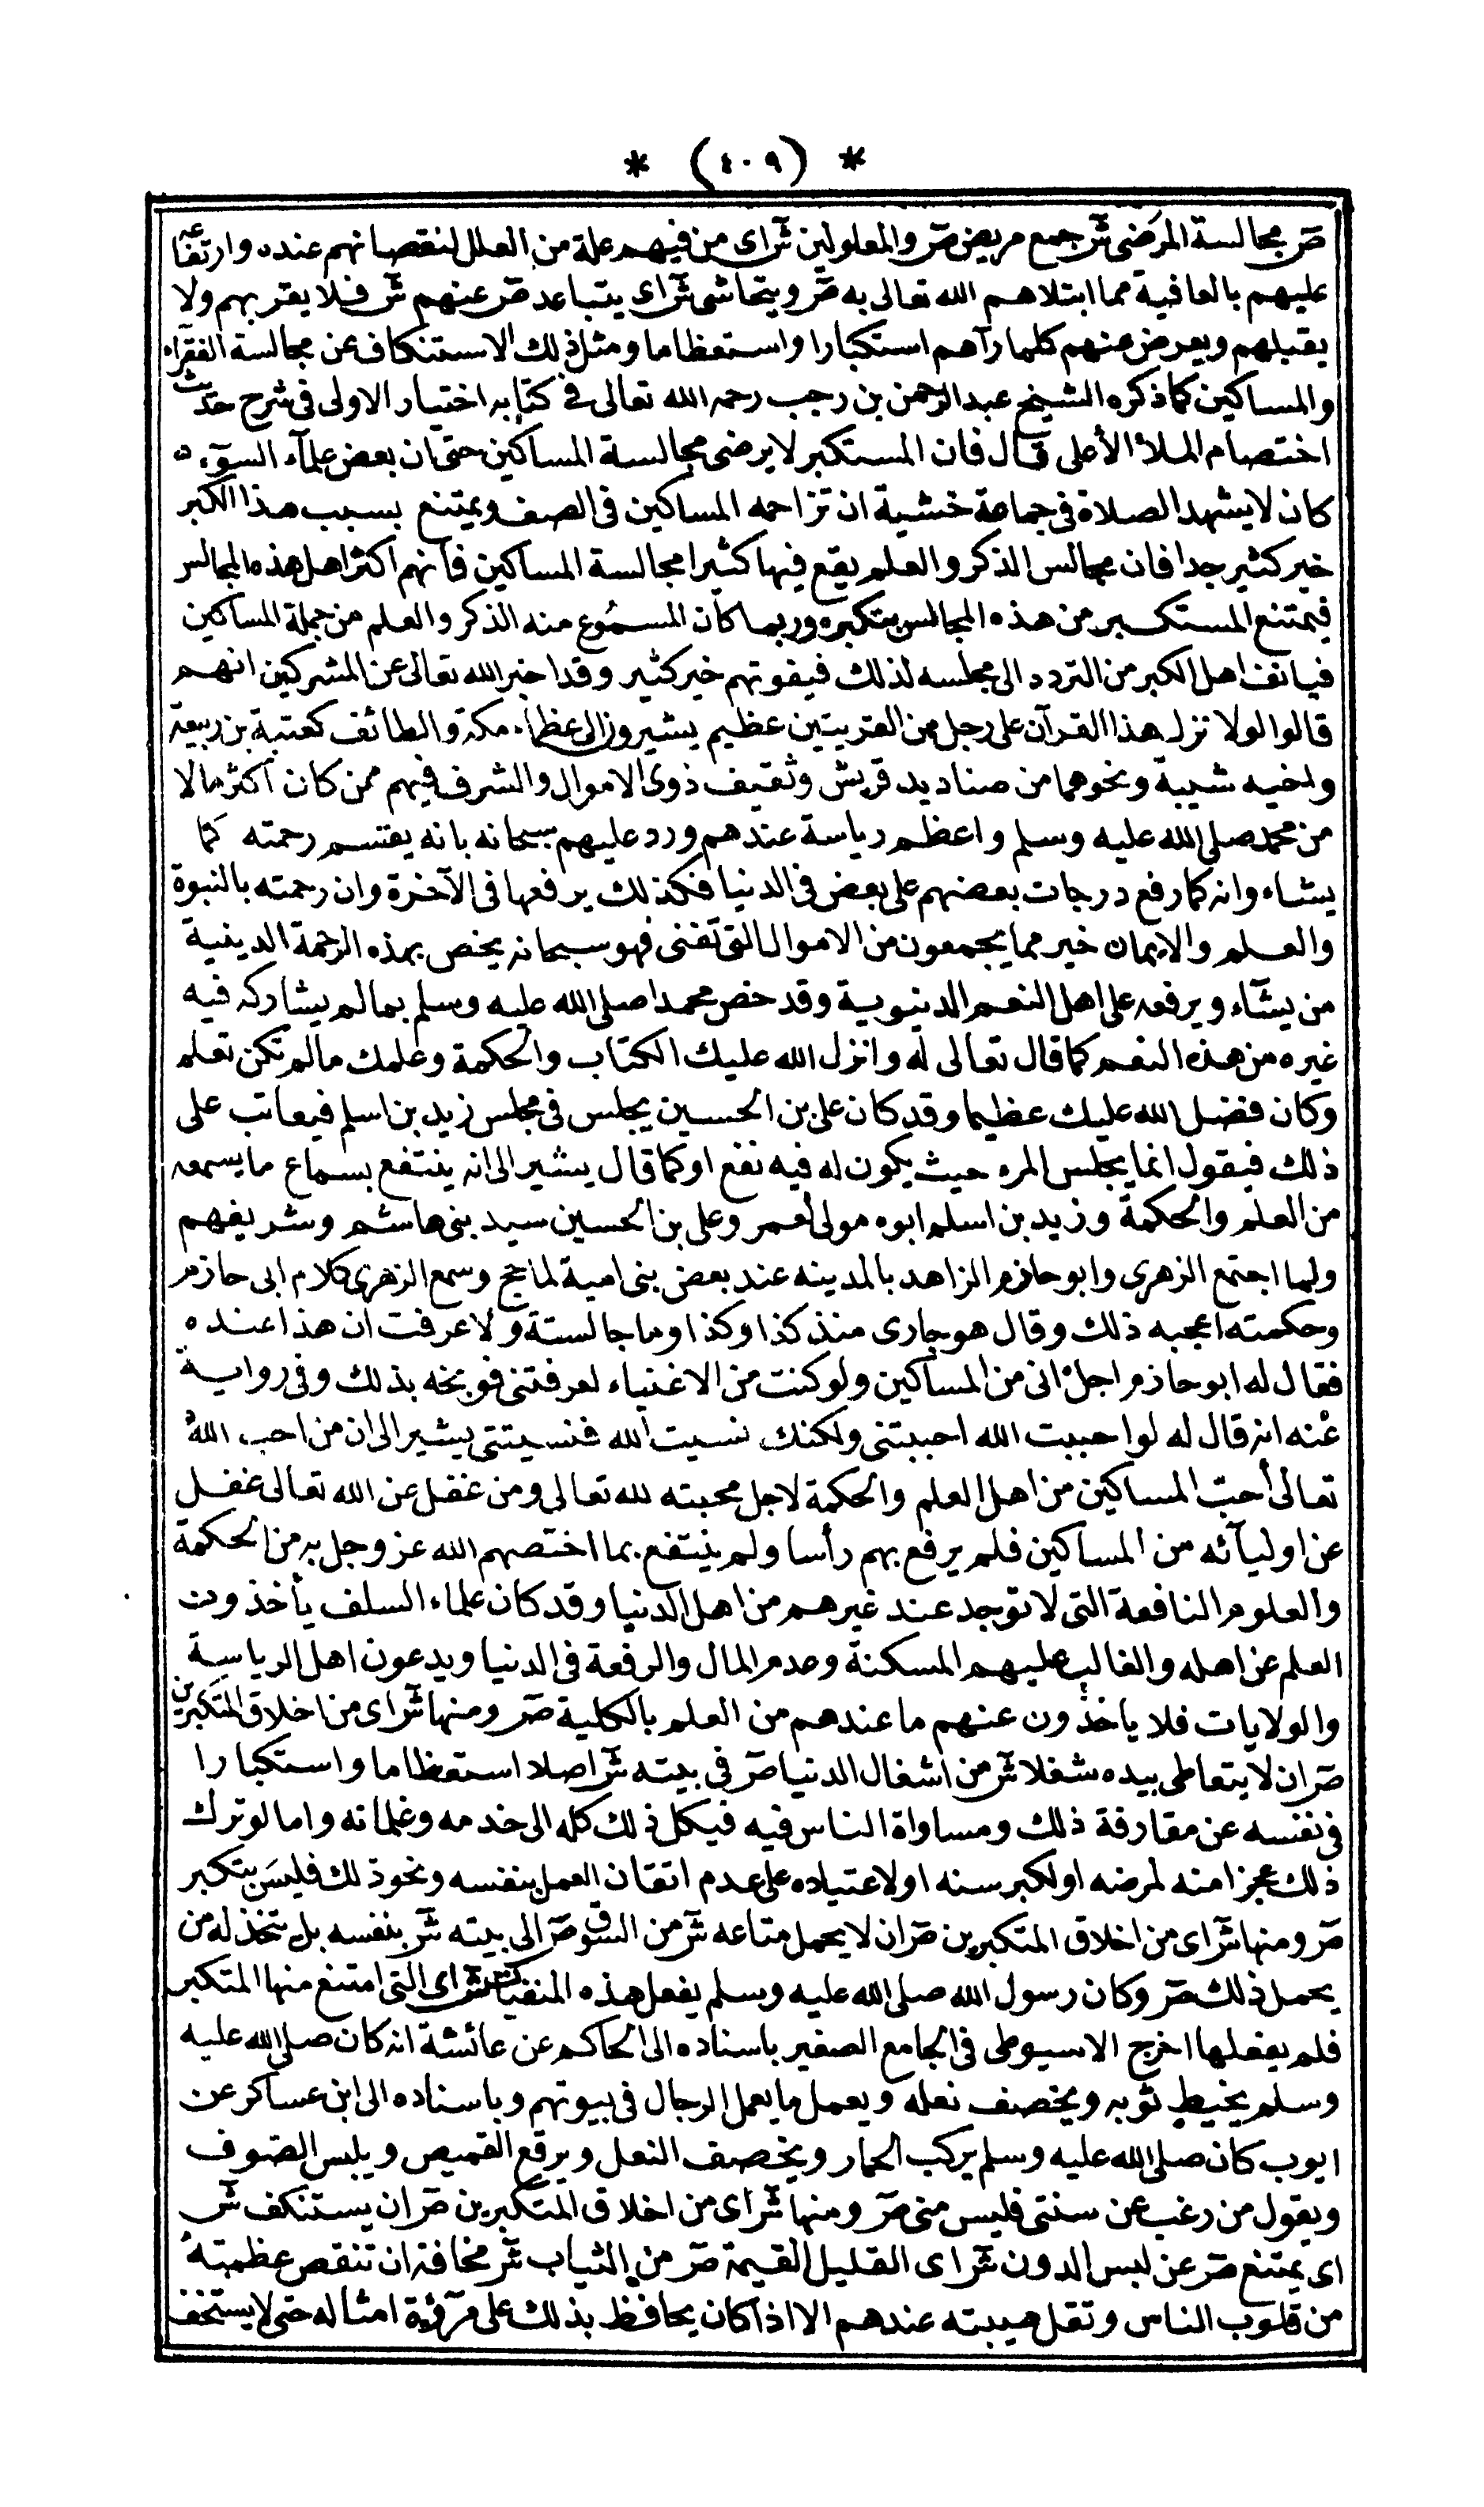 * (٤٠٩) *
صر مجالسة المرضى شر جمع مريض صر والمعلولين شر اى من فيهم علة من العلل لنقصانهم عنده وارتفاعه
عليهم بالعافية مما ابتلاهم الله تعالى به صر ويتحاشى شر اى يتباعد صر عنهم شر فلا يقربهم ولا
يقبلهم ويعرض عنهم كلما رآهم استكبارا واستعظاما ومثل ذلك الاستنكاف عن مجالسة الفقرآء
والمساكين كما ذكره الشيخ عبد الرحمن بن رجب رحمه الله تعالى فى كتابه اختيار الاولى فى شرح حديث
اختصام الملأ الأعلى قال فان المستكبر لا يرضى مجالسة المساكين حتى ان بعض علمآء السوء
كان لا يشهد الصلاة فى جماعة خشية ان تزاحمه المساكين فى الصف ويمتنع بسبب هذا الكبر
خير كثير جدا فان مجالس الذكر والعلم يقع فيها كثيرا مجالسة المساكين فانهم اكثر اهل هذه المجالس
فيمتنع المستكبر من هذه المجالس بتكبره وربما كان المسموع منه الذكر والعلم من جملة المساكين
فيانف اهل الكبر من التردد الى مجلسه لذلك فيفوتهم خير كثير وقد اخبر الله تعالى عن المشركين انهم
قالوا لولا نزل هذا القرآن على رجل من القريتين عظيم يشيرون الى عظماء مكة والطائف كعتبة بن ربيعة
واخيه شيبة ونحوهما من صناديد قريش وثقيف ذوى الاموال والشرف فيهم ممن كان اكثر مالا
من محمد صلى الله عليه وسلم واعظم رياسة عندهم ورد عليهم سبحانه بانه يقسم رحمته كما
يشاء وانه كما رفع درجات بعضهم على بعض فى الدنيا فكذلك يرفعها فى الآخرة وان رحمته بالنبوة
والعلم والايمان خير مما يجمعون من الاموال التى تفنى فهو سبحانه يخص بهذه الرحمة الدينية
من يشآء ويرفعه على اهل النعم الدنيوية وقد خص محمدا صلى الله عليه وسلم بما لم يشاركه فيه
غيره من هذه النعم كما قال تعالى له وانزل الله عليك الكتاب والحكمة وعلمك مالم تكن تعلم
وكان فضل الله عليك عظيما وقد كان على بن الحسين يجلس فى مجلس زيد بن اسلم فيعاتب على
ذلك فيقول انما يجلس المرء حيث يكون له فيه نفع او كما قال يشير الى انه ينتفع بسماع ما يسمعه
من العلم والحكمة وزيد بن اسلم ابوه مولى لعمر وعلى بن الحسين سيد بنى هاشم وشريفهم
ولما اجتمع الزهرى وابو حازم الزاهد بالمدينه عند بعض بنى امية لما حج وسمع الزهرى كلام ابى حازم
وحكمته اعجبه ذلك وقال هو جارى منذ كذا وكذا وما جالسته ولا عرفت ان هذا عنده
فقال له ابو حازم اجل انى من المساكين ولو كنت من الاغنياء لعرفتنى فوبخه بذلك وفى رواية
عنه انه قال له لو احببت الله احببتنى ولكنك نسيت الله فنسيتنى يشير الى ان من احب الله
تعالى أحب المساكين من اهل العلم والحكمة لاجل محبته لله تعالى ومن غفل عن الله تعالى غفل
عن اوليآئه من المساكين فلم يرفع بهم رأسا ولم ينتفع بما اختصهم الله عز وجل به من الحكمة
والعلوم النافعة التى لا توجد عند غيرهم من اهل الدنيا وقد كان علماء السلف يأخذون
العلم عن اهله والغالب عليهم المسكنة وعدم المال والرفعة فى الدنيا ويدعون اهل الرياسة
والولايات فلا ياخذون عنهم ما عندهم من العلم بالكلية صر ومنها شر اى من اخلاق المتكبرين
صر ان لا يتعاطى بيده شغلا شر من اشغال الدنيا صر فى بيته شر اصلا استعظاما واستكبارا
فى نفسه عن مقارفة ذلك ومساواة الناس فيه فيكل ذلك كله الى خدمه وغلمانه واما لو ترك
ذلك عجزا منه لمرضه او لكبر سنه او لاعتياده على عدم اتقان العمل بنفسه ونحو ذلك فليس بتكبر
صر ومنها شر اى من اخلاق المتكبرين صر ان لا يحمل متاعه شر من السوق صر الى بيته شر بنفسه بل يتخذ له من
يحمل ذلك صر وكان رسول الله صلى الله عليه وسلم يفعل هذه المنفيات شر اى التى امتنع منها المتكبر
فلم يفعلها اخرج الاسيوطى فى الجامع الصغير باسناده الى الحاكم عن عائشة انه كان صلى الله عليه
وسلم يخيط ثوبه ويخصف نعله ويعمل ما يعمل الرجال فى بيوتهم وباسناده الى ابن عساكر عن
ايوب كان صلى الله عليه وسلم يركب الحمار ويخصف النعل ويرقع القميص ويلبس الصوف
ويقول من رغب عن سنتى فليس منى صر ومنها شر اى من اخلاق المتكبرين صر ان يستنكف شر
اى يمتنع صر عن لبس الدون شر اى القليل القيمة صر من الثياب شر مخافة ان تنقص عظمته
من قلوب الناس وتقل هيبته عندهم الا اذا كان يحافظ بذلك على مروئة امثاله حتى لا يستخف